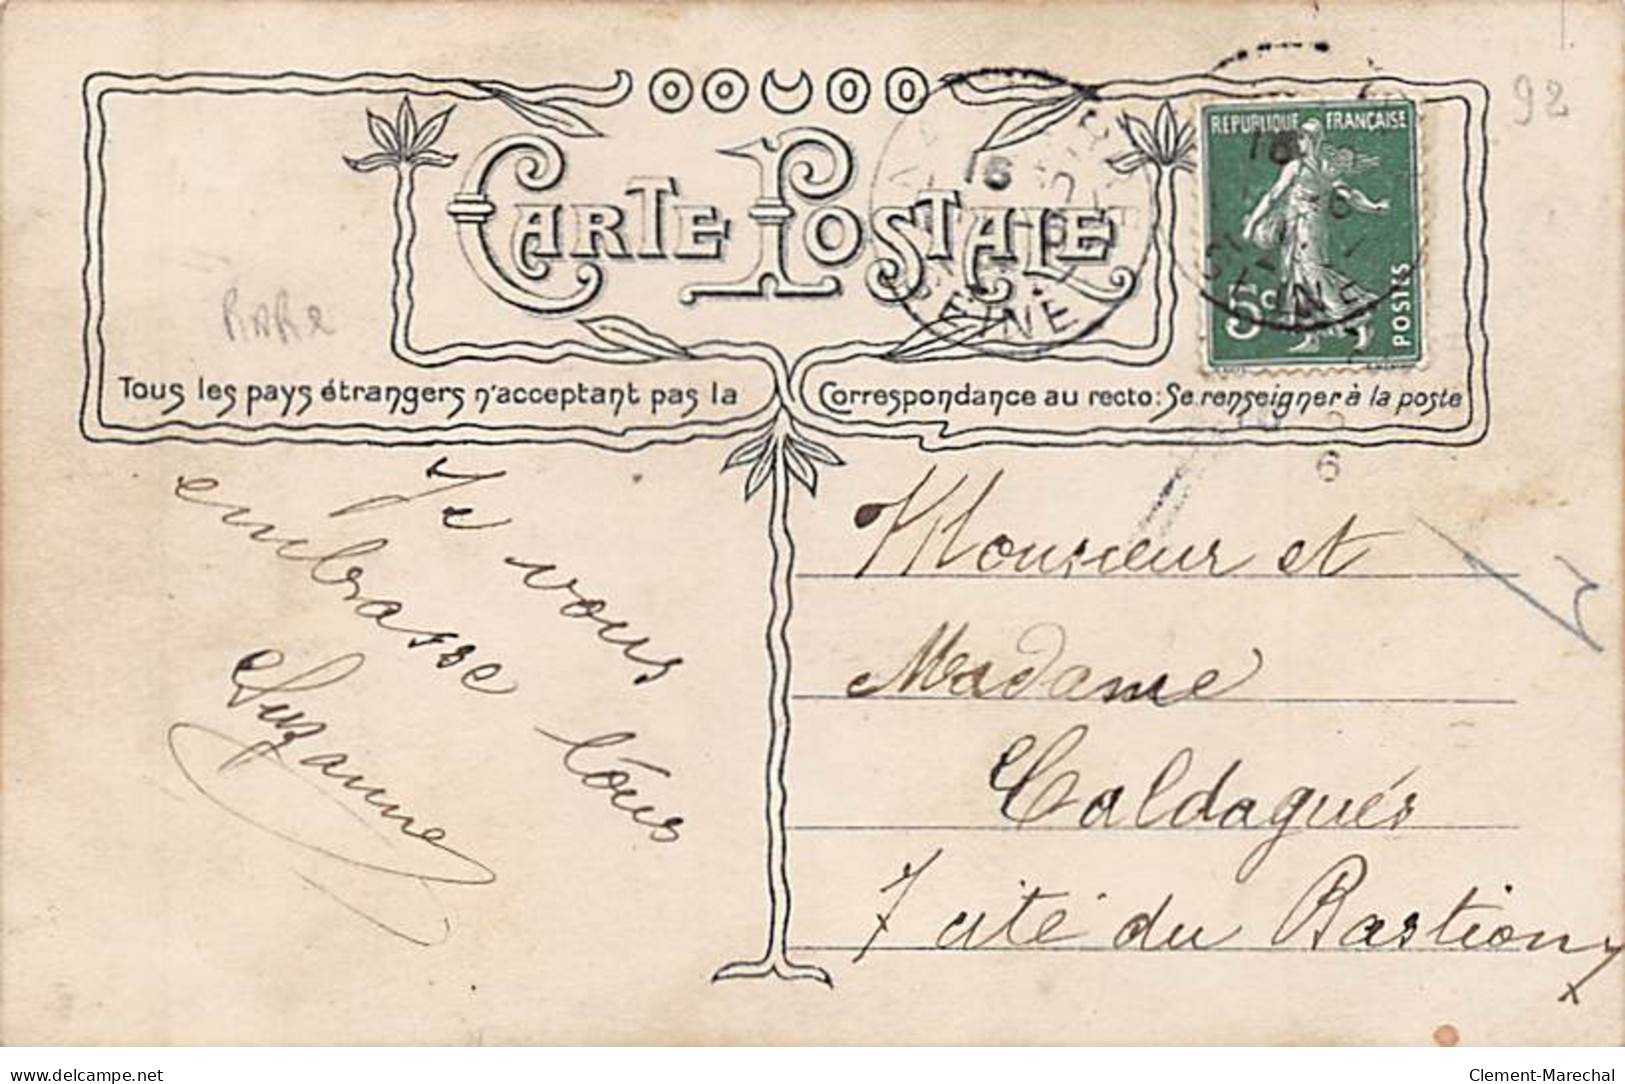 CARTE POSTALE
REPUBLIQUE FRANÇAISE
5c
POSTES
16
16
SEINE
SEINE
6
92
RARe
Tous les pays étrangers n'acceptant pas la Correspondance au recto: Se renseigner à la poste
Je vous
embrasse tous
Suzanne
Monsieur et
Madame
Caldaguès
7 cité du Bastion
x
www.delcampe.net
Clement-Marechal